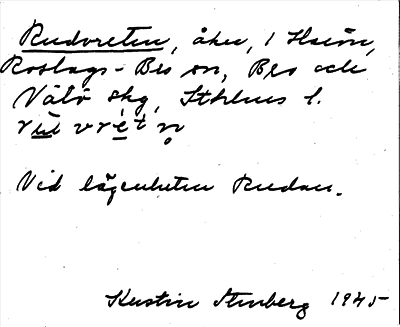 Rudvreten, åker, i Husön,
Roslags-Bro sn, Bro och
Vätö skg, Sthlms l.
rudvretn̥
Vid lägenheten Rudan.
Kerstin Stenberg 1945